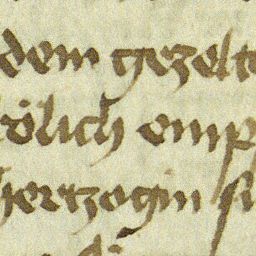 dem gezelt
frölich emp
hertzogin si